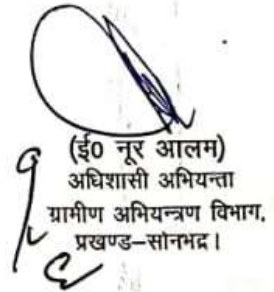 (ई0 नूर आलम)
अधिशासी अभियन्ता
ग्रामीण अभियन्त्रण विभाग,
प्रखण्ड–सोनभद्र।